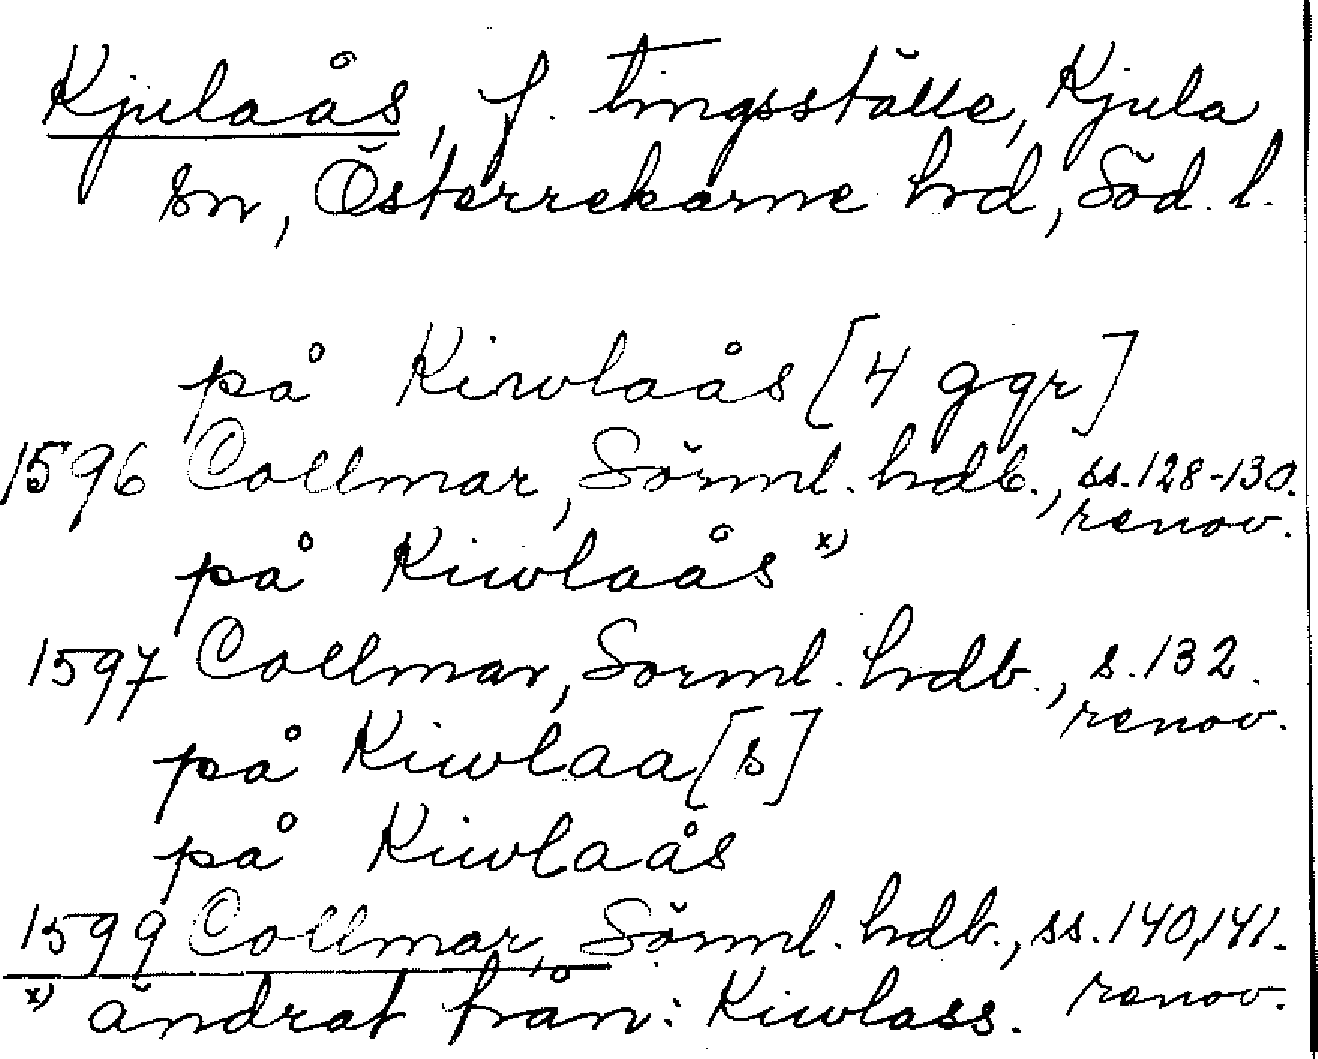 Kjulaås, f. tingsställe, Kjula
sn, Österrekarne hrd, Söd. l.
på Kiwlaås [4 ggr]
1596 Collmar, Sörml. hrdb., ss. 128-130.
renov.
på Kiwlaås x)
1597 Collmar, Sörml. hrdb., s. 132.
renov.
på Kiwlaa[s]
på Kiwlaås
1599 Collmar, Sörml. hrdb., ss. 140, 141.
renov.
x) ändrat från: Kiwlass.